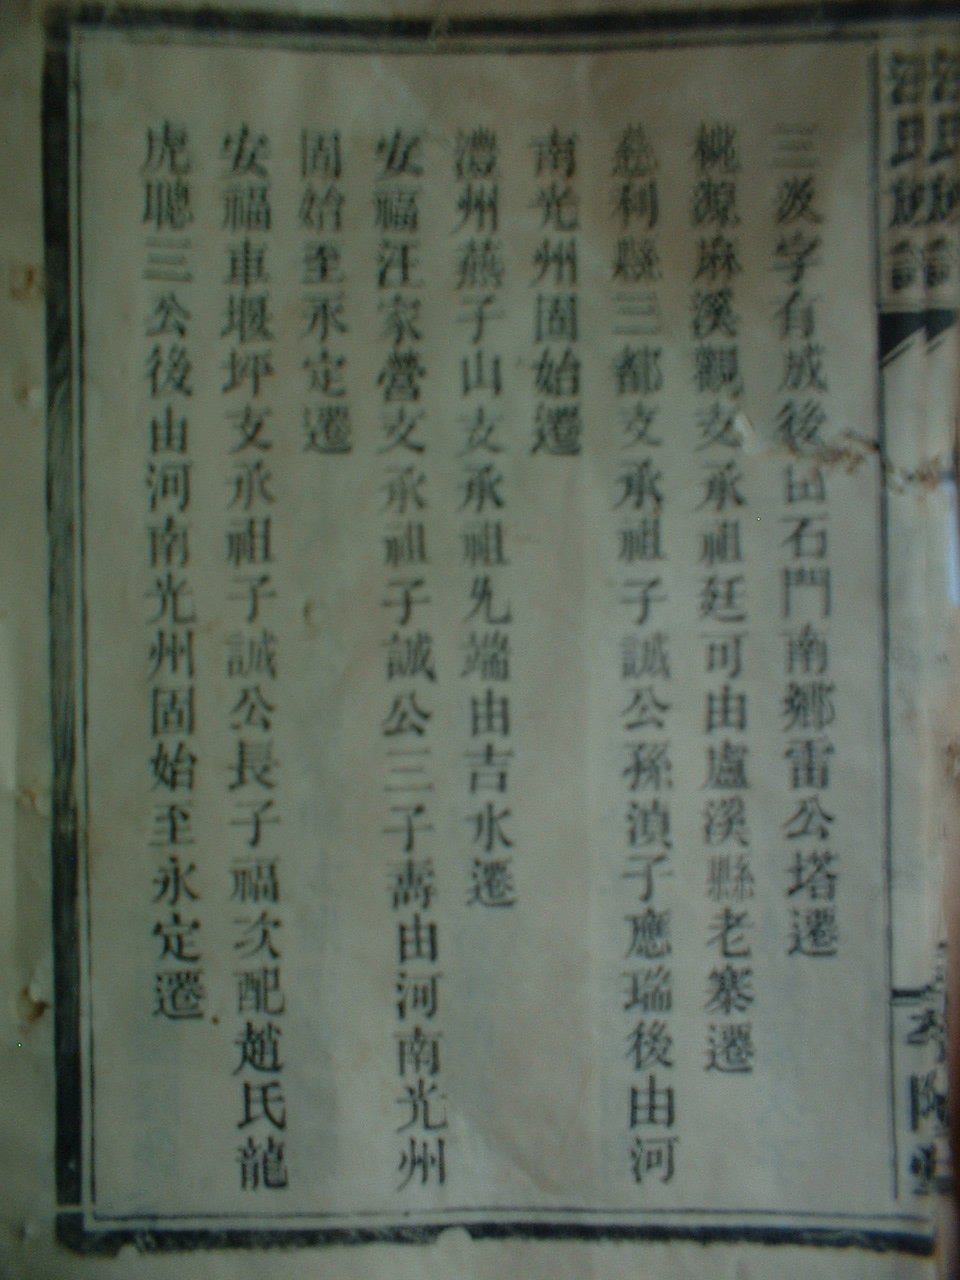 汪氏族譜
三汲字有成後由石門南鄉雷公塔遷
桃源麻溪觀支承祖廷可由盧溪縣老寨遷
慈利縣三都支承祖子誠公孫滇子應瑞後由河
南光州固始遷
澧州燕子山支承祖先端由吉水遷
安福汪家營支承祖子誠公三子壽由河南光州
固始至永定遷
安福車堰坪支承祖子誠公長子福次配趙氏龍
虎聰三公後由河南光州固始至永定遷